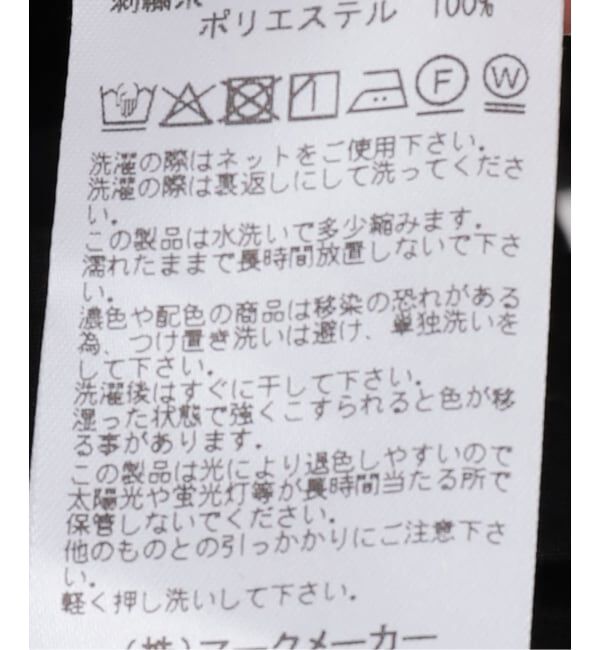 刺繍糸
ポリエステル 100%
F W
洗濯の際はネットをご使用下さい。
洗濯の際は裏返しにして洗ってくださ
い。
この製品は水洗いで多少縮みます。
濡れたままで長時間放置しないで下さ
い。
濃色や配色の商品は移染の恐れがある
為、つけ置き洗いは避け、単独洗いを
して下さい。
洗濯後はすぐに干して下さい。
湿った状態で強くこすられると色が移
る事があります。
この製品は光により退色しやすいので
太陽光や蛍光灯等が長時間当たる所で
保管しないでください。
他のものとの引っかかりにご注意下さ
い。
軽く押し洗いして下さい。
(株)マークメーカー